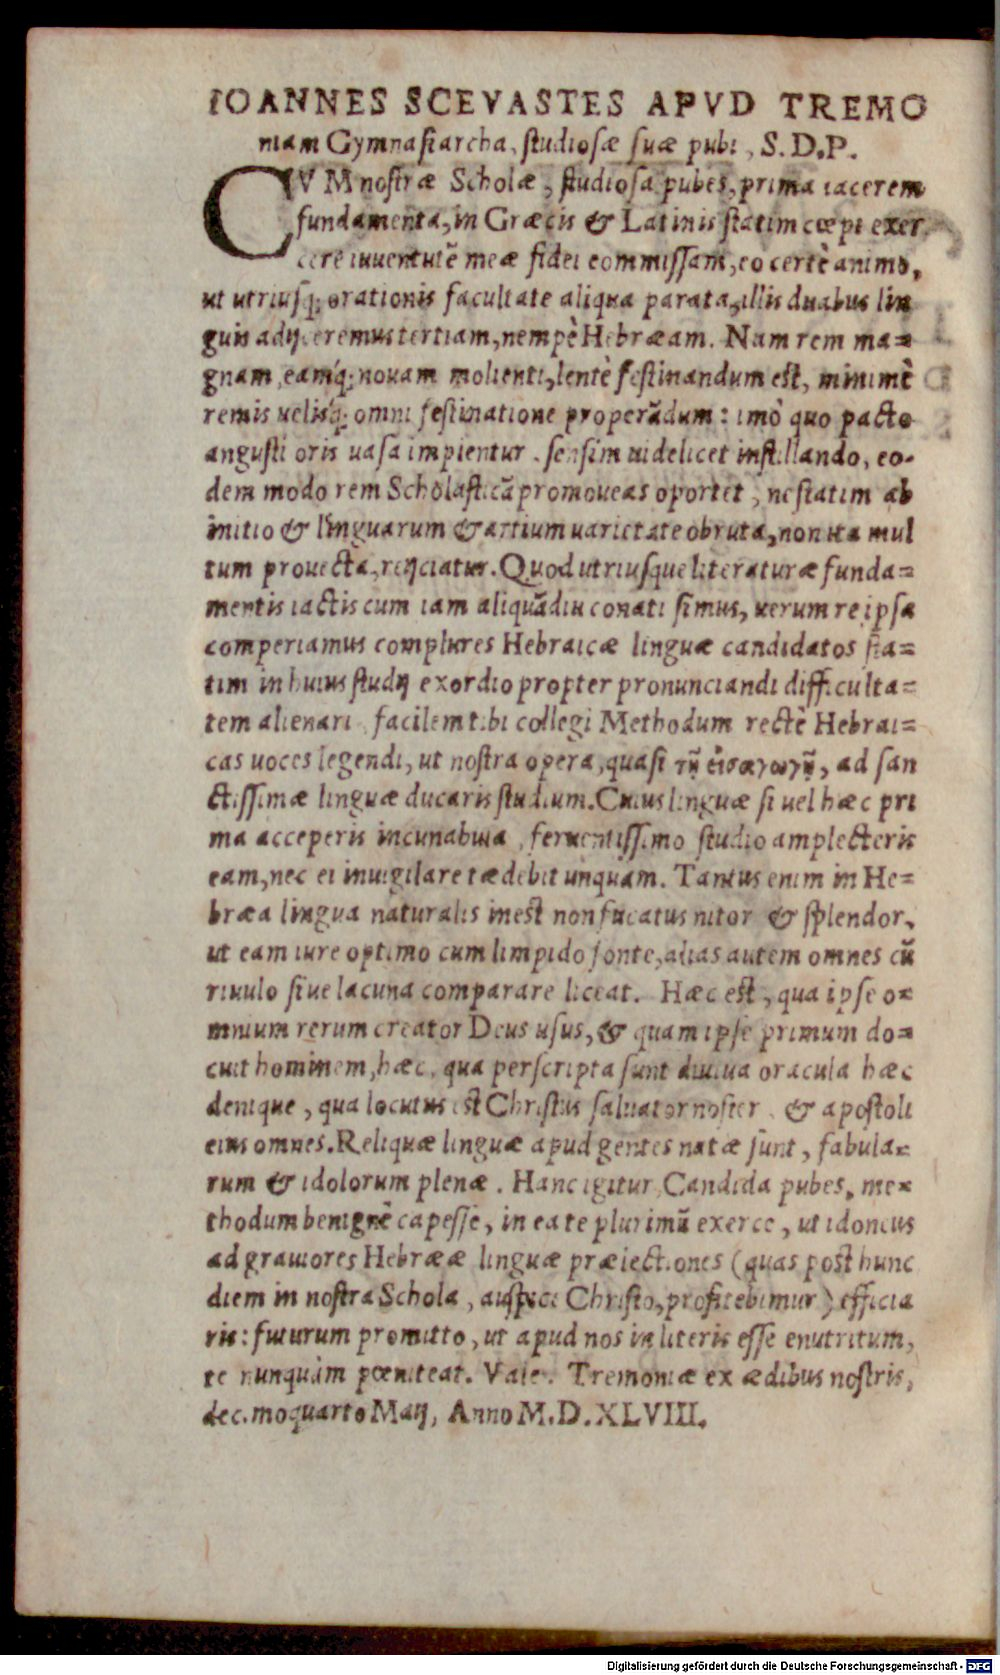 IOANNES SCEVASTES APVD TREMO
niam Gymnasiarcha, studiosæ suæ pubi, S. D. P.
CVM nostræ Scholæ, studiosa pubes, prima iacerem
fundamenta, in Græcis & Latinis statim cœpi exer
cere iuuentutẽ meæ fidei commissam, eo certè animo,
ut utriusq; orationis facultate aliqua parata, illis duabus lin
guis adijceremus tertiam, nempè Hebræam. Nam rem ma=
gnam, eamq́; nouam molienti, lentè festinandum est, minimè
remis uelisq́; omni festinatione properãdum: imò quo pacto
angusti oris uasa implentur, sensim uidelicet instillando, eo-
dem modo rem Scholasticã promoueas oportet, ne statim ab
initio & linguarum & artium uarietate obruta, non ita mul
tum prouecta, reijciatur. Quod utriusque literaturæ funda=
mentis iactis cum iam aliquãdiu conati simus, uerum re ipsa
comperiamus complures Hebraicæ linguæ candidatos sta=
tim in huius studij exordio propter pronunciandi difficulta=
tem alienari, facilem tibi collegi Methodum rectè Hebrai=
cas uoces legendi, ut nostra opera, quasi τῇ εἰσαγωγῇ, ad san
ctissimæ linguæ ducaris studium. Cuius linguæ si uel hæc pri
ma acceperis incunabula, feruentissimo studio amplecteris
eam, nec ei inuigilare tædebit unquam. Tantus enim in He=
bræa lingua naturalis inest non fucatus nitor & splendor,
ut eam iure optimo cum limpido fonte, alias autem omnes cũ
riuulo siue lacuna comparare liceat. Hæc est, qua ipse o=
mnium rerum creator Deus usus, & quam ipse primum do=
cuit hominem, hæc, qua perscripta sunt diuina oracula hæc
denique, qua locutus est Christus saluator noster, & apostoli
eius omnes. Reliquæ linguæ apud gentes natæ sunt, fabula=
rum & idolorum plenæ. Hanc igitur, Candida pubes, me=
thodum benignè capesse, in ea te plurimũ exerce, ut idoneus
ad grauiores Hebrææ linguæ præiectiones (quas post hunc
diem in nostra Schola, auspice Christo, profitebimur) efficia
ris: futurum promitto, ut apud nos in literis esse enutritum,
te nunquàm pœniteat. Vale. Tremoniæ ex ædibus nostris,
decimoquarto Maij, Anno M. D. XLVIII.
Digitalisierung gefördert durch die Deutsche Forschungsgemeinschaft - DFG